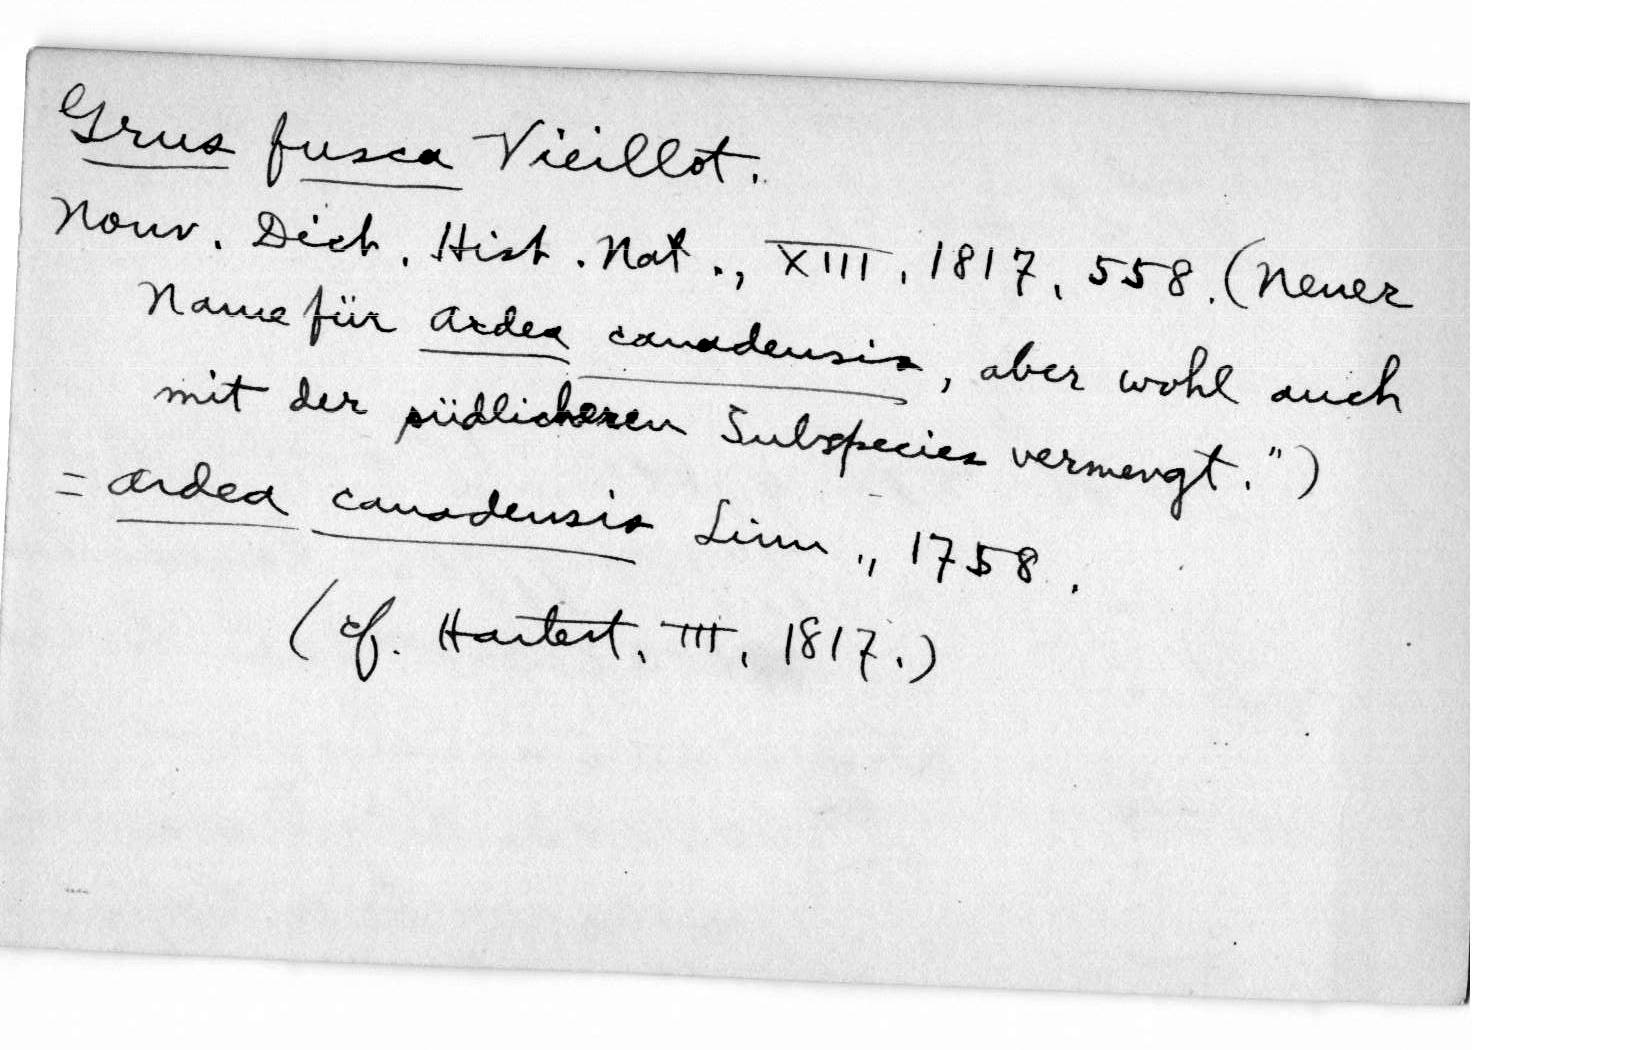 Grus fusca Vieillot.
Nouv. Dict. Hist. Nat., XIII, 1817, 558. (Neuer
Name für Ardea canadensis, aber wohl auch
mit der südlicheren Subspecies vermengt.")
= Ardea canadensis Linn., 1758.
(cf. Hartert, III, 1817.)